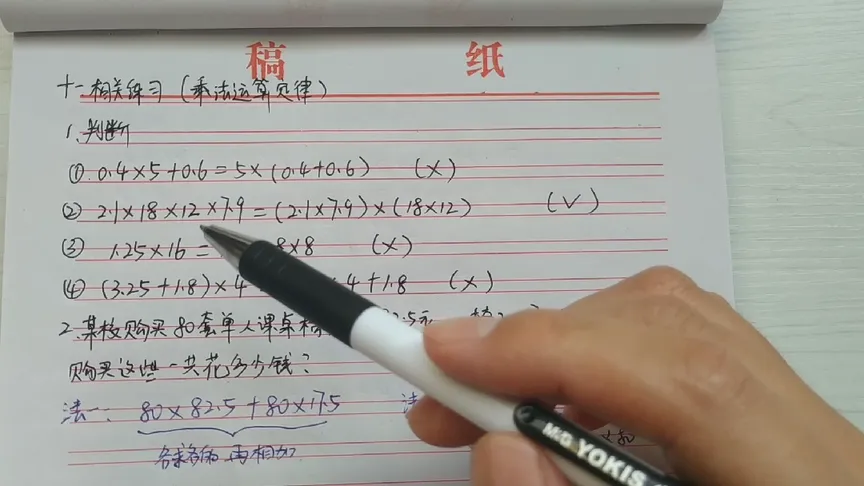 稿 纸
十一 相关练习（乘法运算定律）
1、判断
① 0.4×5+0.6=5×(0.4+0.6) (×)
② 2.1×18×12×7.9=(2.1×7.9)×(18×12) (√)
③ 1.25×16= 8×8 (×)
④ (3.25+1.8)×4 4+1.8 (×)
2、某校购买80套单人课桌椅 2.5元
购买这些一共花多少钱？
法一: 80×82.5+80×17.5 法
再相加
M&G YOKIS